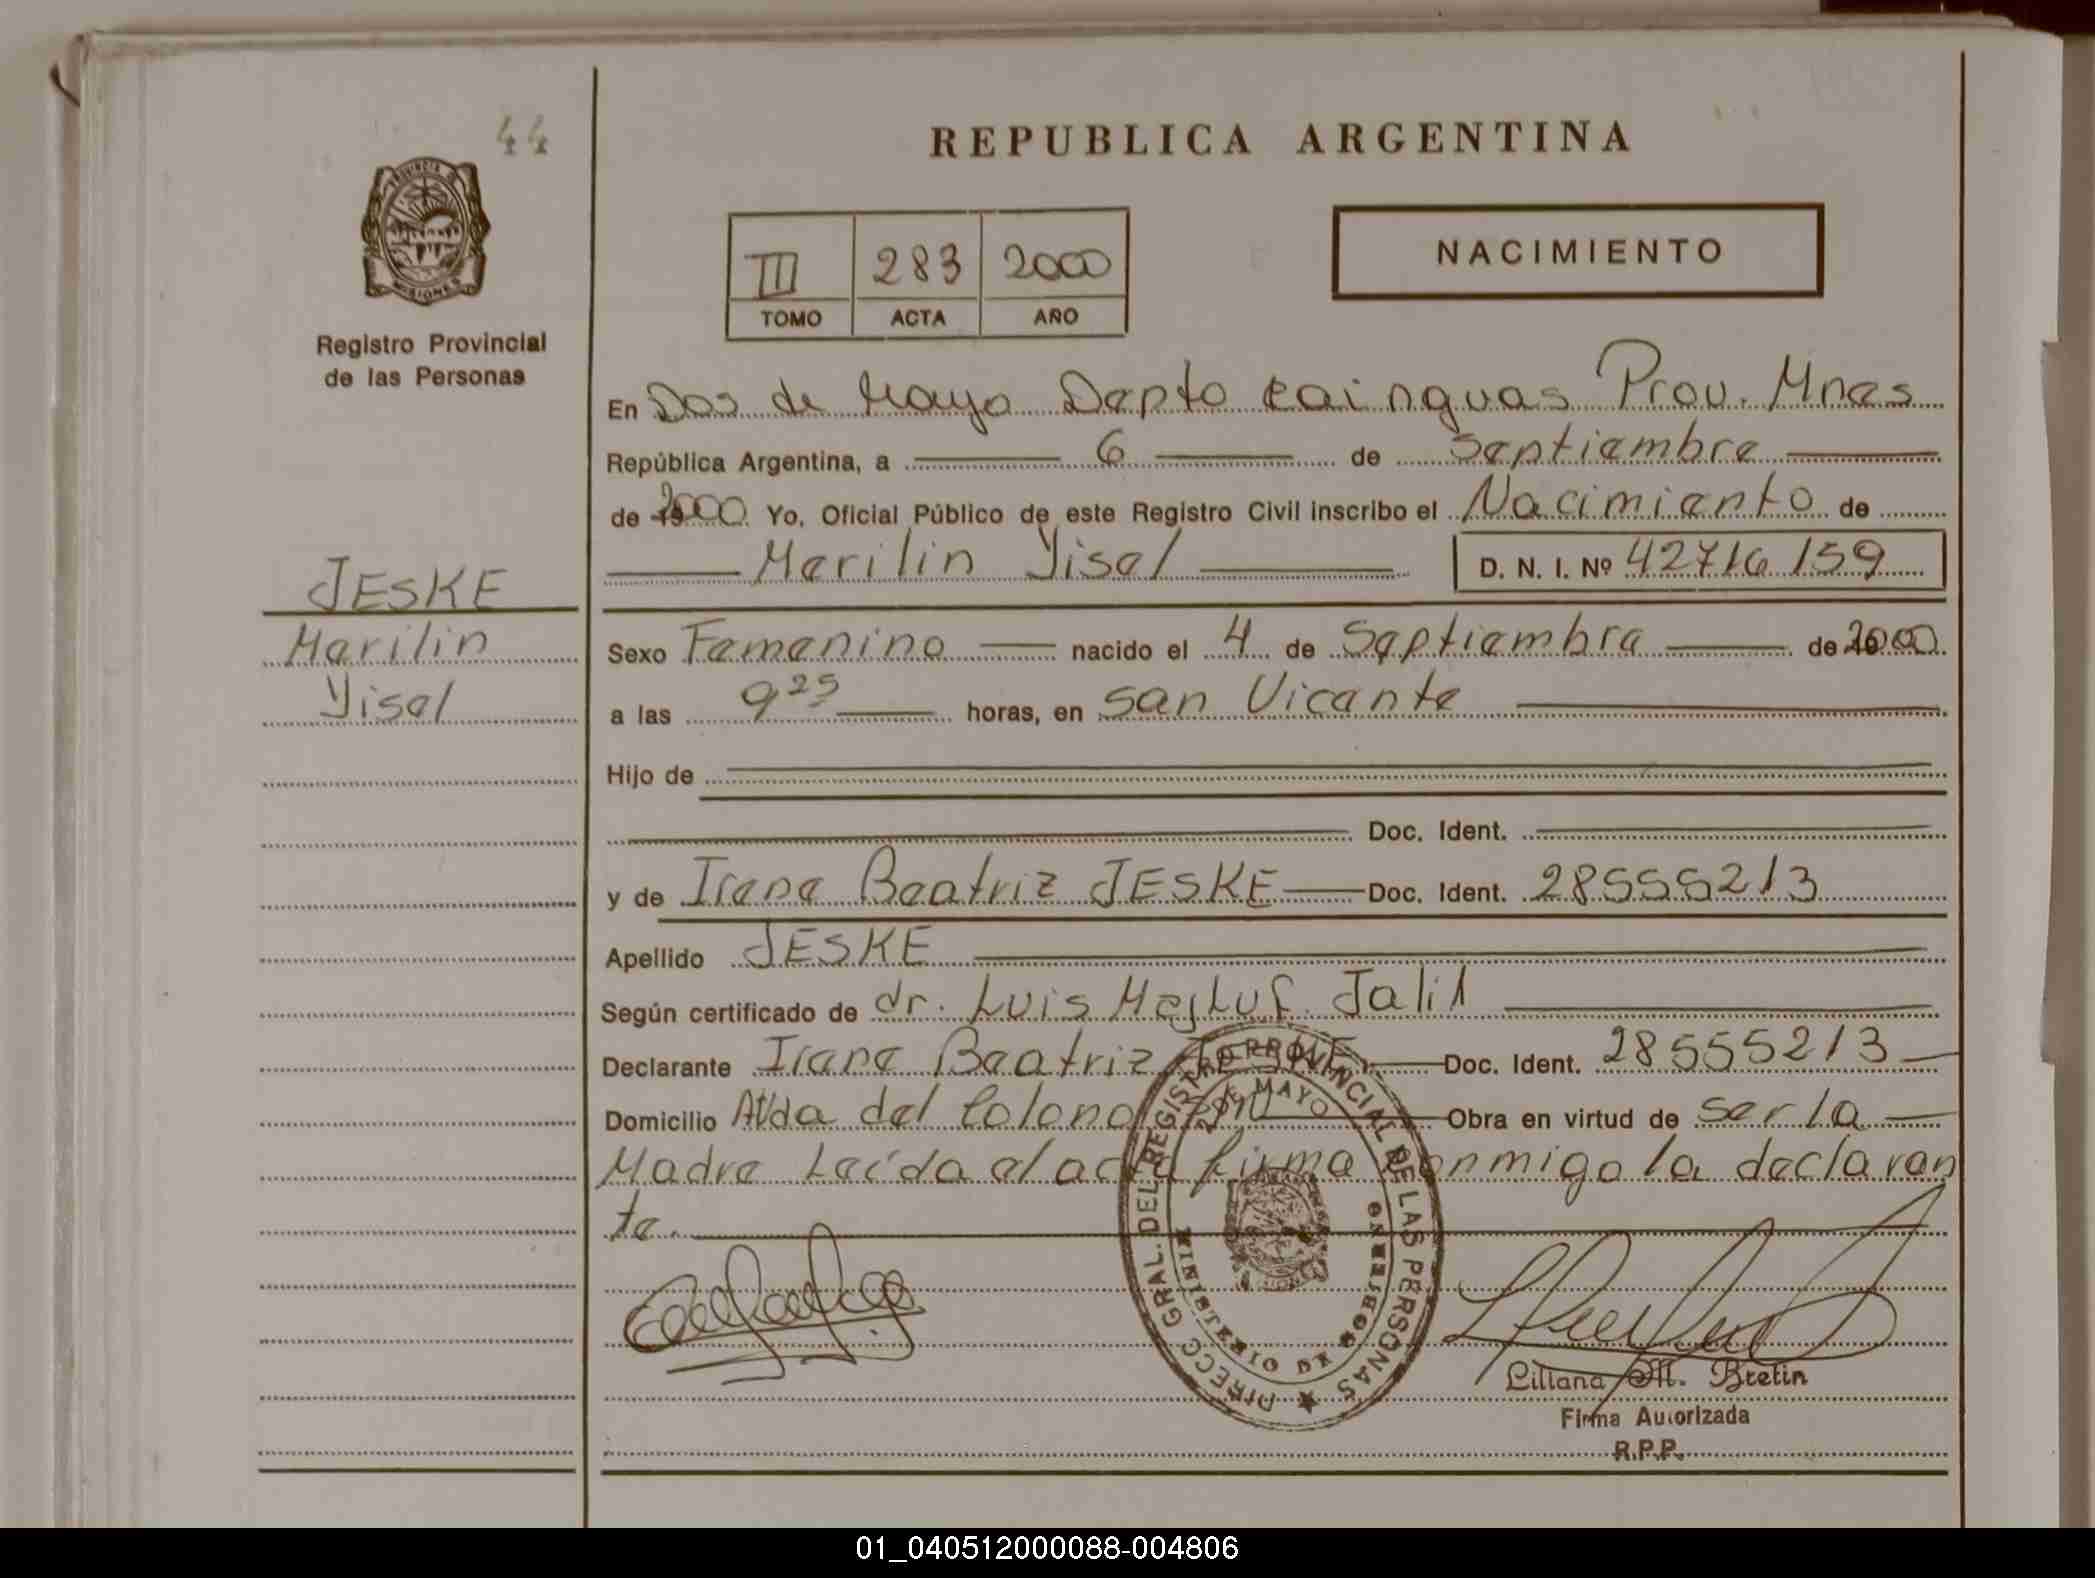 44
REPUBLICA ARGENTINA
PROVINCIA DE
MISIONES
III 283 2000
TOMO ACTA AÑO
NACIMIENTO
Registro Provincial
de las Personas
En Dos de Mayo Depto Cainguas Prov. Mnes
República Argentina, a 6 de Septiembre
de 2000 Yo, Oficial Público de este Registro Civil inscribo el Nacimiento de
Marilin Yisel D. N. I. Nº 42716159
JESKE
Marilin
Yisel
Sexo Femenino nacido el 4 de Septiembre de 2000
a las 9 25 horas, en San Vicente
Hijo de
Doc. Ident.
y de Irene Beatriz JESKE Doc. Ident. 28555213
Apellido JESKE
Según certificado de dr. Luis Majluf Jalil
Declarante Irene Beatriz JESKE Doc. Ident. 28555213
Domicilio Avda del Colono S/Nº Obra en virtud de ser la
Madre Leída el acta firma conmigo la declaran
te.
DIRECC GRAL. DEL REGISTRO PROVINCIAL DE LAS PERSONAS
2 DE MAYO
MINISTERIO DE GOBIERNO
Liliana M. Bretin
Firma Autorizada
R.P.P.
01_040512000088-004806